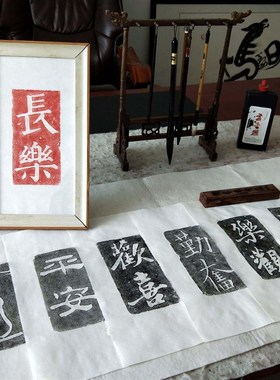 長樂
平安
歡喜
勤奮
樂觀